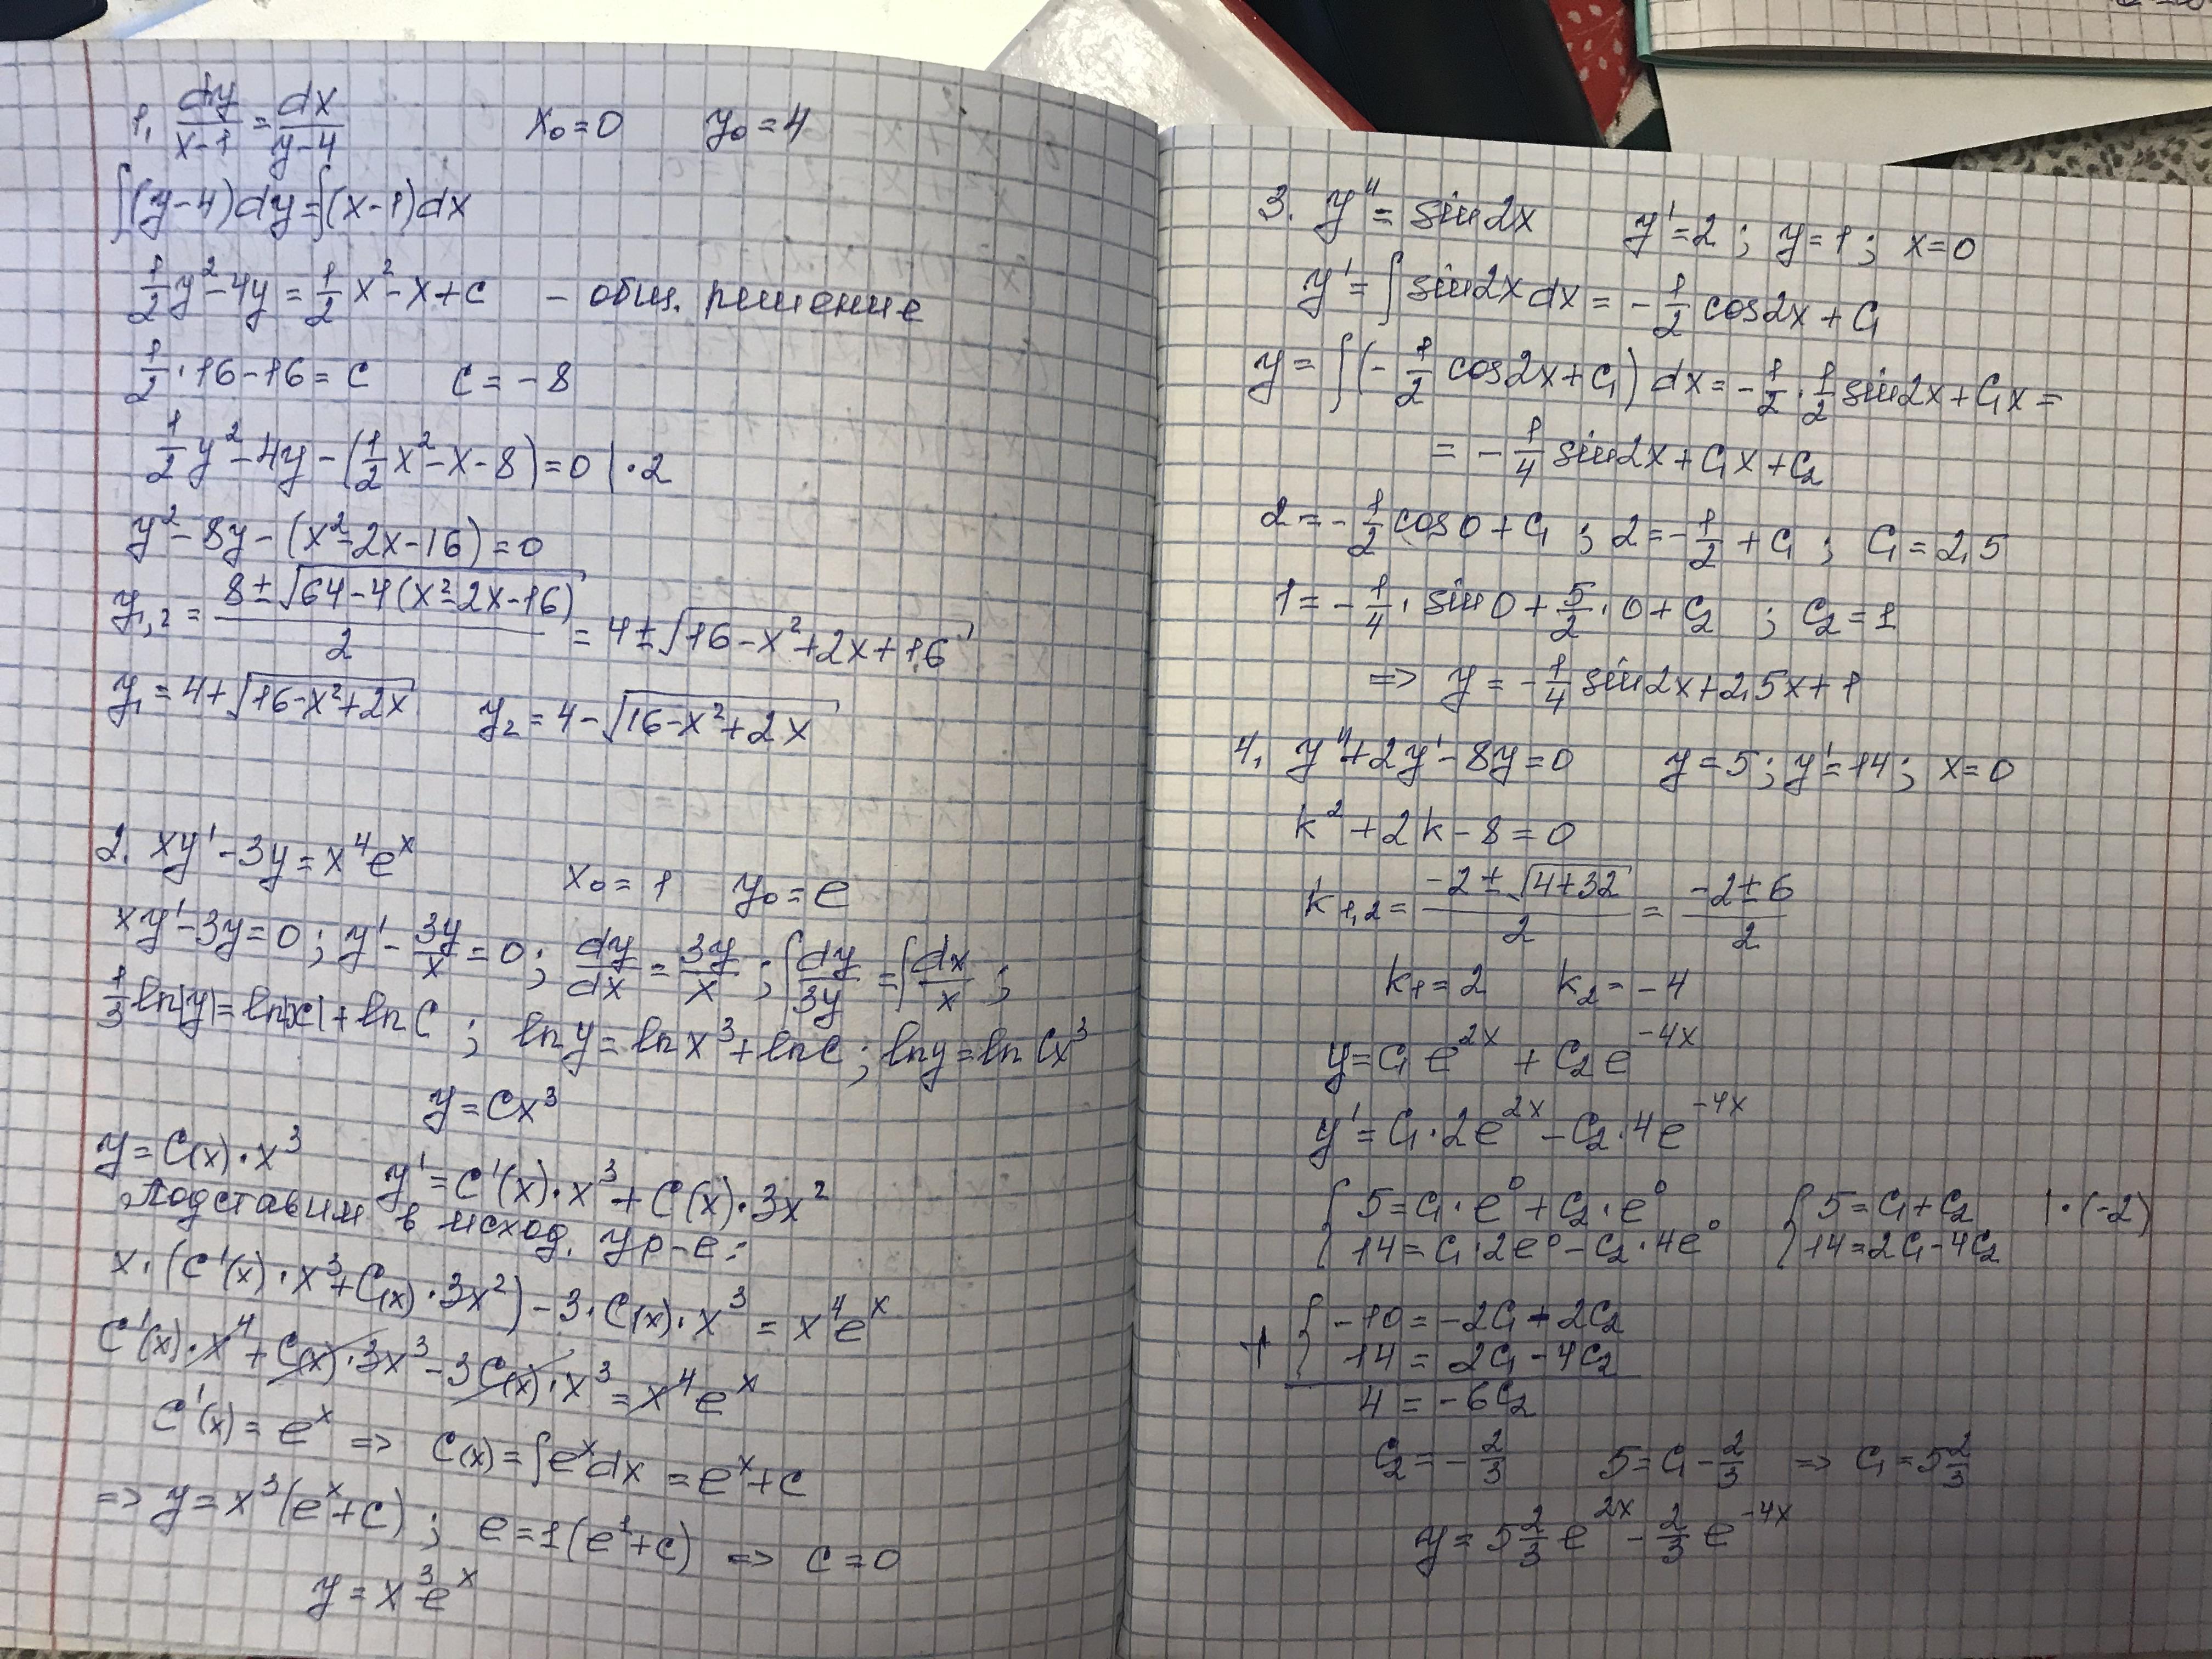 1. dy/(x-1) = dx/(y-4)    x₀=0    y₀=4
∫(y-4)dy=∫(x-1)dx
1/2 y²-4y = 1/2 x²-x+c  - общ. решение
1/2·16-16=c    c=-8
1/2 y²-4y-(1/2 x²-x-8)=0 |·2
y²-8y-(x²-2x-16)=0
y₁,₂ = (8±√(64-4(x²-2x-16)))/2 = 4±√(16-x²+2x+16)
y₁=4+√(16-x²+2x)    y₂=4-√(16-x²+2x)
2. xy'-3y=x⁴eˣ    x₀=1    y₀=e
xy'-3y=0; y'-3y/x=0; dy/dx=3y/x; ∫dy/3y=∫dx/x;
1/3 ln|y|=ln|x|+ln C; ln y=ln x³+ln C; ln y=ln Cx³
y=Cx³
y=C(x)·x³    y'=C'(x)·x³+C(x)·3x²
Подставим в исход. ур-е:
x·(C'(x)·x³+C(x)·3x²)-3·C(x)·x³=x⁴eˣ
C'(x)·x⁴+C(x)·3x³-3C(x)·x³=x⁴eˣ
C'(x)=eˣ => C(x)=∫eˣdx=eˣ+c
=> y=x³(eˣ+c); e=1(e¹+c) => c=0
y=x³eˣ
3. y''=sin2x    y'=2; y=1; x=0
y'=∫sin2xdx=-1/2 cos2x+C₁
y=∫(-1/2 cos2x+C₁)dx=-1/2·1/2 sin2x+C₁x=
=-1/4 sin2x+C₁x+C₂
2=-1/2 cos0+C₁; 2=-1/2+C₁; C₁=2,5
1=-1/4·sin0+5/2·0+C₂; C₂=1
=> y=-1/4 sin2x+2,5x+1
4. y''+2y'-8y=0    y=5; y'=14; x=0
k²+2k-8=0
k₁,₂=(-2±√(4+32))/2=(-2±6)/2
k₁=2    k₂=-4
y=C₁e²ˣ+C₂e⁻⁴ˣ
y'=C₁·2e²ˣ-C₂·4e⁻⁴ˣ
{5=C₁·e⁰+C₂·e⁰    {5=C₁+C₂  |·(-2)
{14=C₁·2e⁰-C₂·4e⁰    {14=2C₁-4C₂
+ {-10=-2C₁-2C₂
{14=2C₁-4C₂
4=-6C₂
C₂=-2/3    5=C₁-2/3 => C₁=5 2/3
y=5 2/3 e²ˣ-2/3 e⁻⁴ˣ